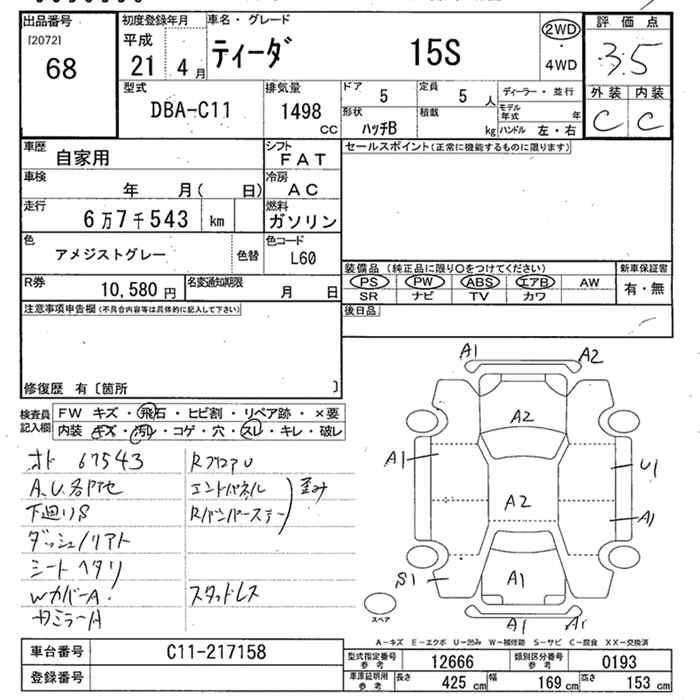 出品番号
[2072]
68
初度登録年月
平成
21 4月
車名・グレード
ティーダ 15S
2WD
・
4WD
評価点
3.5
外装 内装
C C
型式
DBA-C11
排気量
1498
CC
ドア
5
定員
5 人
ディーラー・並行
形状
ハッチB
積載
kg
モデル年式 年
ハンドル 左・右
車歴
自家用
シフト
FAT
セールスポイント(正常に機能するものに限ります)
車検
年 月( 日)
冷房
AC
走行
6万7千543 km
燃料
ガソリン
色
アメジストグレー
色替
色コード
L60
装備品 (純正品に限り○をつけてください)
PS PW ABS エアB AW
SR ナビ TV カワ
新車保証書
有・無
R券
10,580 円
名変通知期限
月 日
後日品
注意事項申告欄(不具合内容等は具体的に記入して下さい)
修復歴 有〔箇所 〕
検査員記入欄
FW キズ・飛石・ヒビ割・リペア跡・×要
内装 キズ・汚レ・コゲ・穴・スレ・キレ・破レ
オド 67543
A.U.各P他
下廻りS
ダッシュ/リアト
シートヘタリ
WカバーA!
カミラーA
RフロアU
エンドパネル
Rバンパーステー
歪み
スタッドレス
A1 A2
A2
A1
U1
A2
A1
S1
A1
A1 A1
スペア
A-キズ E-エクボ U-凹み W-補修跡 S-サビ C-腐食 XX-交換済
車台番号
C11-217158
登録番号
型式指定番号
参考
12666
類別区分番号
参考
0193
車庫証明用
参考
長さ
425 cm
幅
169 cm
高さ
153 cm